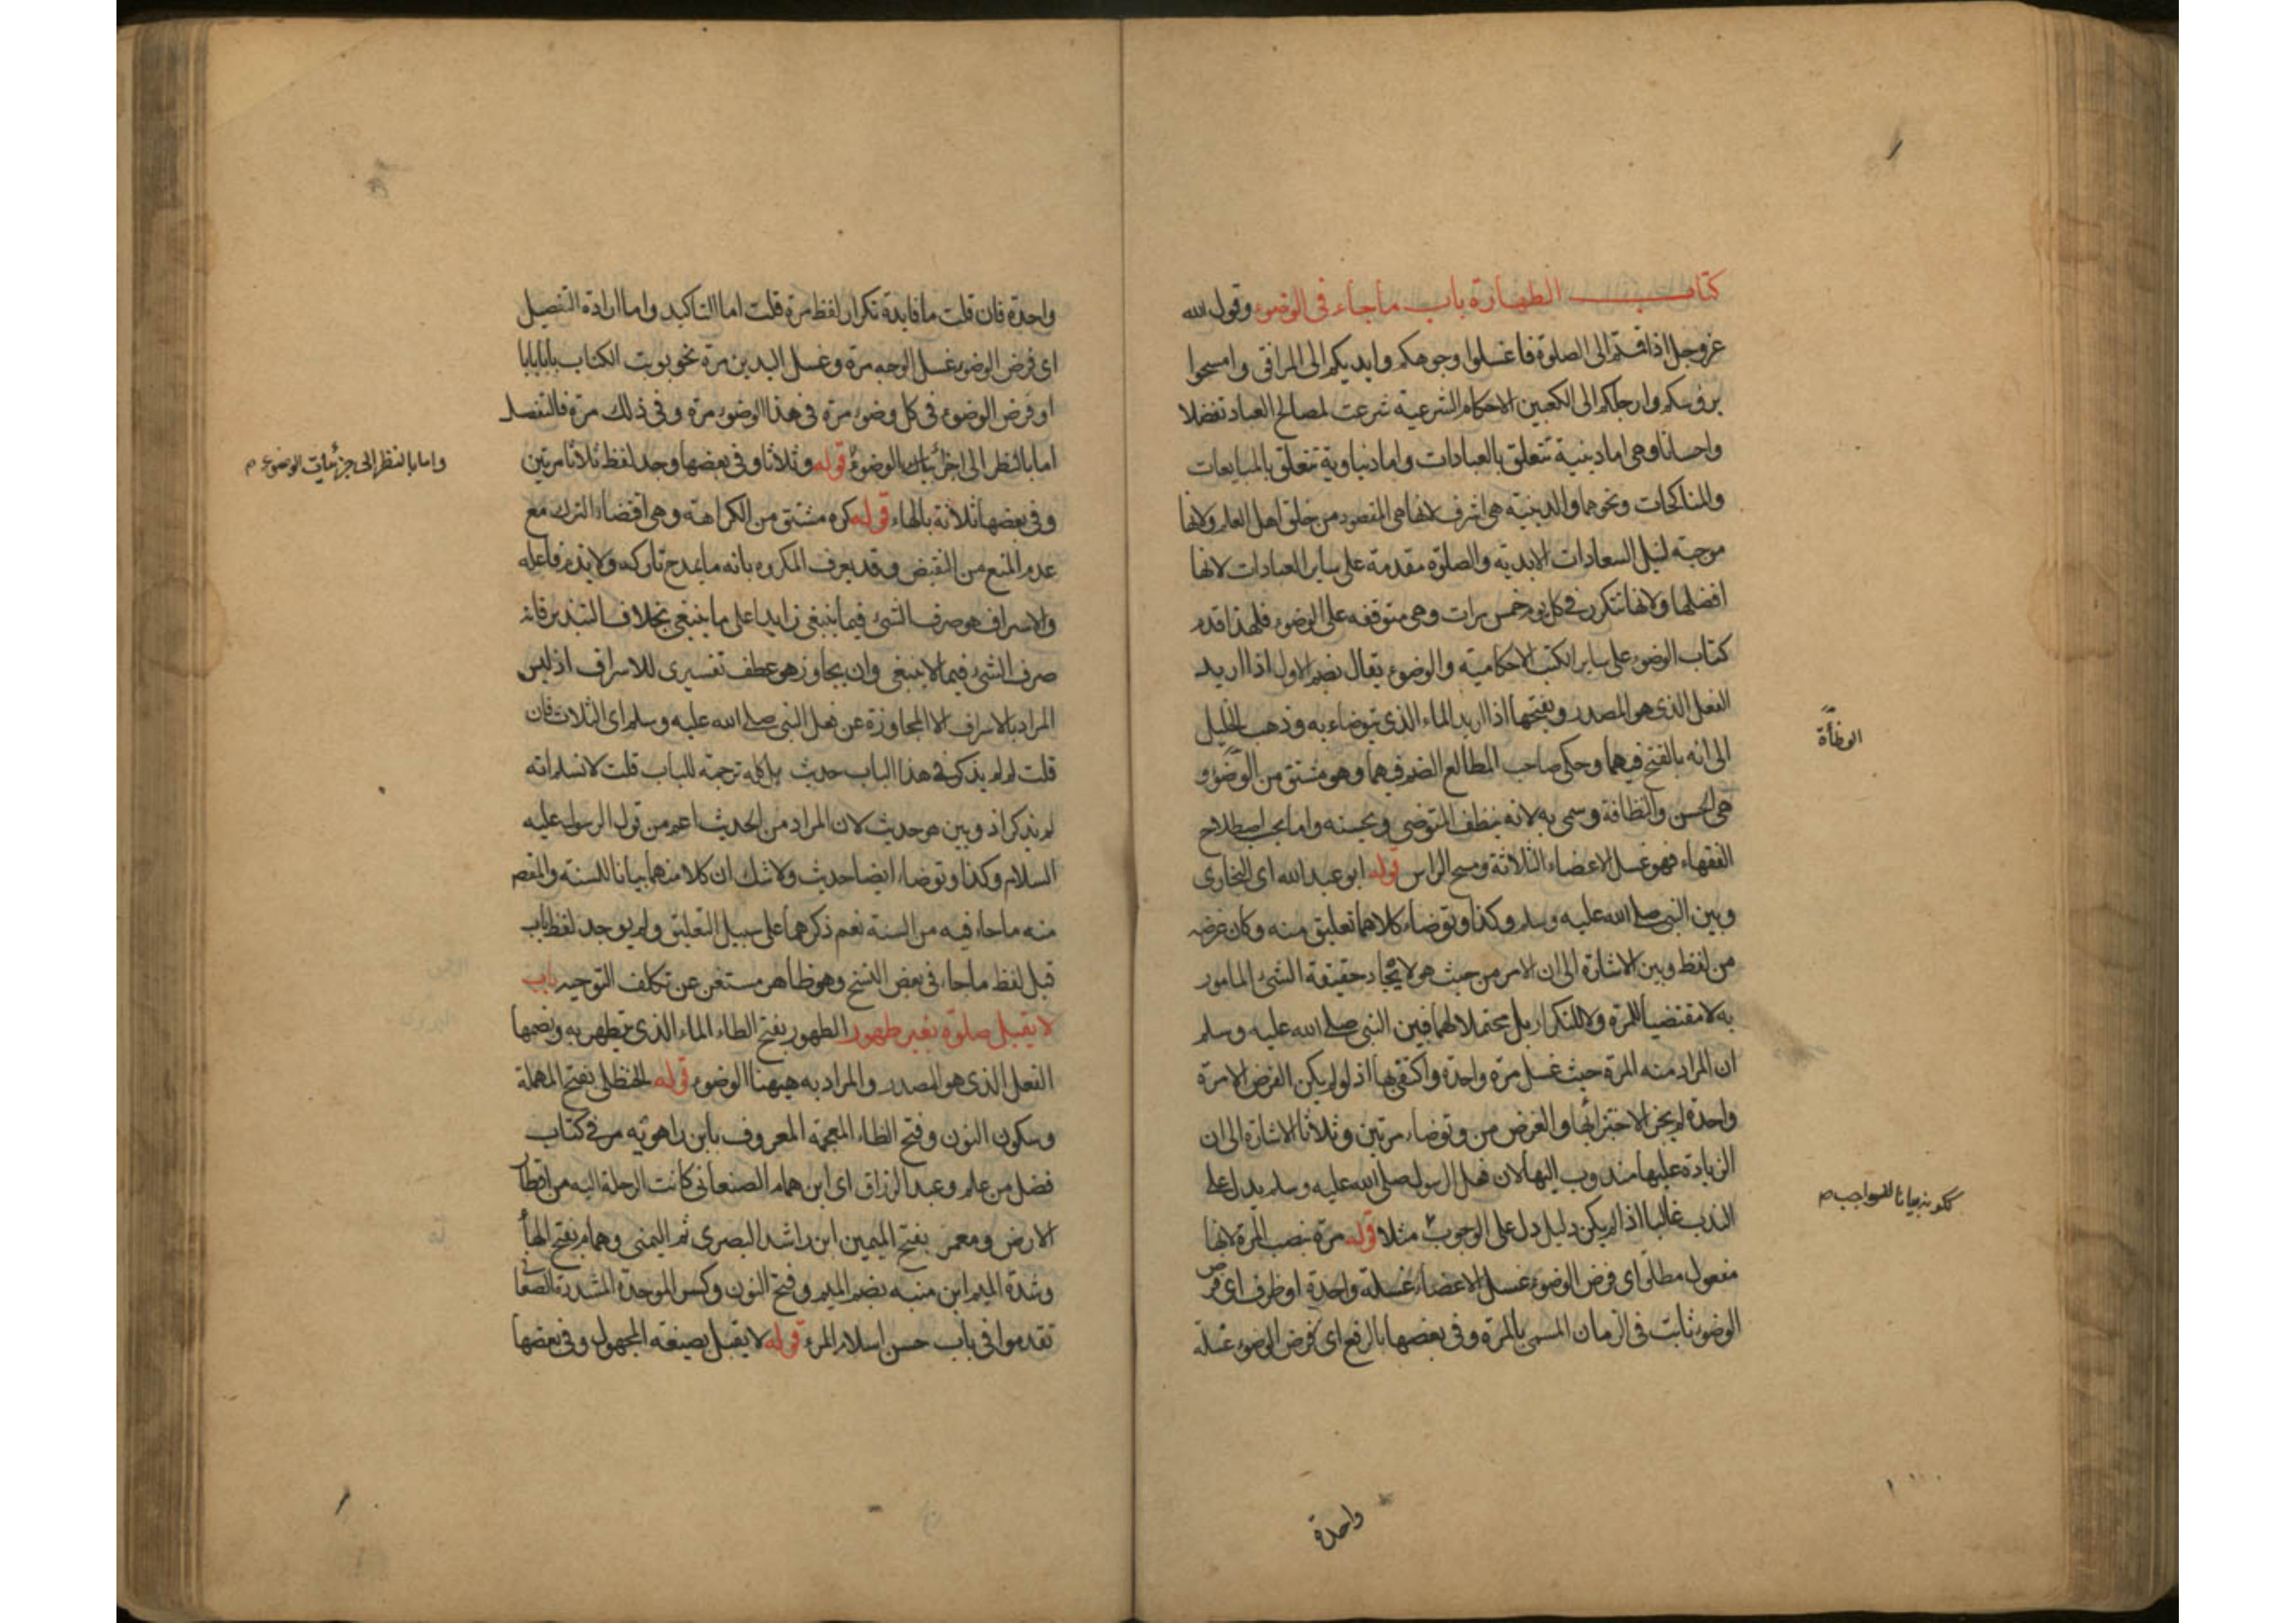 كتاب الطهارة باب ما جاء فى الوضوء وقول الله
عز وجل اذا قمتم الى الصلوة فاغسلوا وجوهكم وايديكم الى المرافق وامسحوا
برؤسكم وارجلكم الى الكعبين الاحكام الشرعية شرعت لمصالح العباد تفضلا
واحسانا وهى اما دينية تتعلق بالعبادات واما دنياوية تتعلق بالمبايعات
والمناكحات ونحوهما والدينية هى اشرف لانها هى المقصود من خلق اهل العالم ولانها
موجبة لنيل السعادات الابدية والصلوة مقدمة على ساير العبادات لانها
افضلها ولانها تتكرر فى كل يوم خمس مرات وهى متوقفه على الوضوء فلهذا قدم
كتاب الوضوء على ساير الكتب الاحكامية والوضوء يقال بضم الاول اذا اريد
الفعل الذى هو المصدر وبفتحها اذا اريد الماء الذى يتوضاء به وذهب الخليل
الى انه بالفتح فيهما وحكى صاحب المطالع الضم فيهما وهو مشتق من الوضوء و
الوضأة
هى الحسن والنظافة وسمى به لانه ينظف المتوضى ويحسنه واما بحسب اصطلاح
الفقهاء فهو غسل الاعضاء الثلاثة ومسح الراس قوله ابو عبد الله اى البخارى
وبين النبى صلى الله عليه وسلم وكذا وتوضاء كلاهما تعليق منه وكان غرضه
من لفظ وبين الاشارة الى ان الامر من حيث هو لايجاد حقيقة الشئ المامور
به لا مقتضيا للمرة ولا للتكرار بل محتملا لهما فبين النبى صلى الله عليه وسلم
ان المراد منه المرة حيث غسل مرة واحدة واكتفى بها اذ لو لم يكن الفرض الا مرة
واحدة لم يجز الاجتزاء بها والغرض من وتوضاء مرتين وثلاثا الاشارة الى ان
الزيادة عليها مندوب اليها لان فعل الرسول صلى الله عليه وسلم يدل على
الندب غالبا اذا لم يكن دليل دل على الوجوب مثلا قوله مرة نصب المرة لانها
لكونه بيانا للواجب م
مفعول مطلق اى فرض الوضوء غسل الاعضاء غسلة واحدة او ظرف اى فرض
الوضوء ثابت فى الزمان المسمى بالمرة وفى بعضها بالرفع اى فرض الوضوء غسلة
واحدة
واحدة فان قلت ما فايدة تكرار لفظ مرة قلت اما التاكيد واما ارادة التفصيل
اى فرض الوضوء غسل الوجه مرة وغسل اليدين مرة نحو بوبت الكتاب بابا بابا
او فرض الوضوء فى كل وضوء مرة فى هذا الوضوء مرة وفى ذلك مرة فالتفصيل
اما بالنظر الى اجزاء الوضوء قوله وثلاثا وفى بعضها وجد لفظ ثلاثا مرتين
واما بالنظر الى جزئيات الوضوء م
وفى بعضها ثلاثة بالهاء قوله كره مشتق من الكراهة وهى اقتضاء الترك مع
عدم المنع من النقيض وقد يعرف المكروه بانه ما يمدح تاركه ولا يذم فاعله
والاسراف هو صرف الشئ فيما ينبغى زايدا على ما ينبغى بخلاف التبذير فانه
صرف الشئ فيما لا ينبغى وان يجاوز هو عطف تفسيرى للاسراف اذ ليس
المراد بالاسراف الا المجاوزة عن فعل النبى صلى الله عليه وسلم اى الثلاث فان
قلت لم لم يذكر فى هذا الباب حديث بل كله ترجمة للباب قلت لا نسلم انه
لم يذكر اذ وبين هو حديث لان المراد من الحديث اعم من قول الرسول عليه
السلام وكذا وتوضاء ايضا حديث ولا شك ان كلا منهما بيانا للسنة والمقصود
منه ما جاء فيه من السنة نعم ذكرهما على سبيل التعليق ولم يوجد لفظ باب
قبل لفظ ما جاء فى بعض النسخ وهو ظاهر مستغن عن تكلف التوجيه باب
لا يقبل صلوة بغير طهور الطهور بفتح الطاء الماء الذى يتطهر به وبضمها
الفعل الذى هو المصدر والمراد به هيهنا الوضوء قوله الحنظلى بفتح المهملة
وسكون النون وفتح الظاء المعجمة المعروف بابن راهويه مر فى كتاب
فضل من علم وعبد الرزاق اى ابن همام الصنعانى كانت الرحلة اليه من اقطار
الارض ومعمر بفتح الميمين ابن راشد البصرى ثم اليمنى وهمام بفتح الهاء
وشدة الميم ابن منبه بضم الميم وفتح النون وكسر الموحدة المشددة الصنعانى
تقدموا فى باب حسن اسلام المرء قوله لا يقبل بصيغة المجهول وفى بعضها